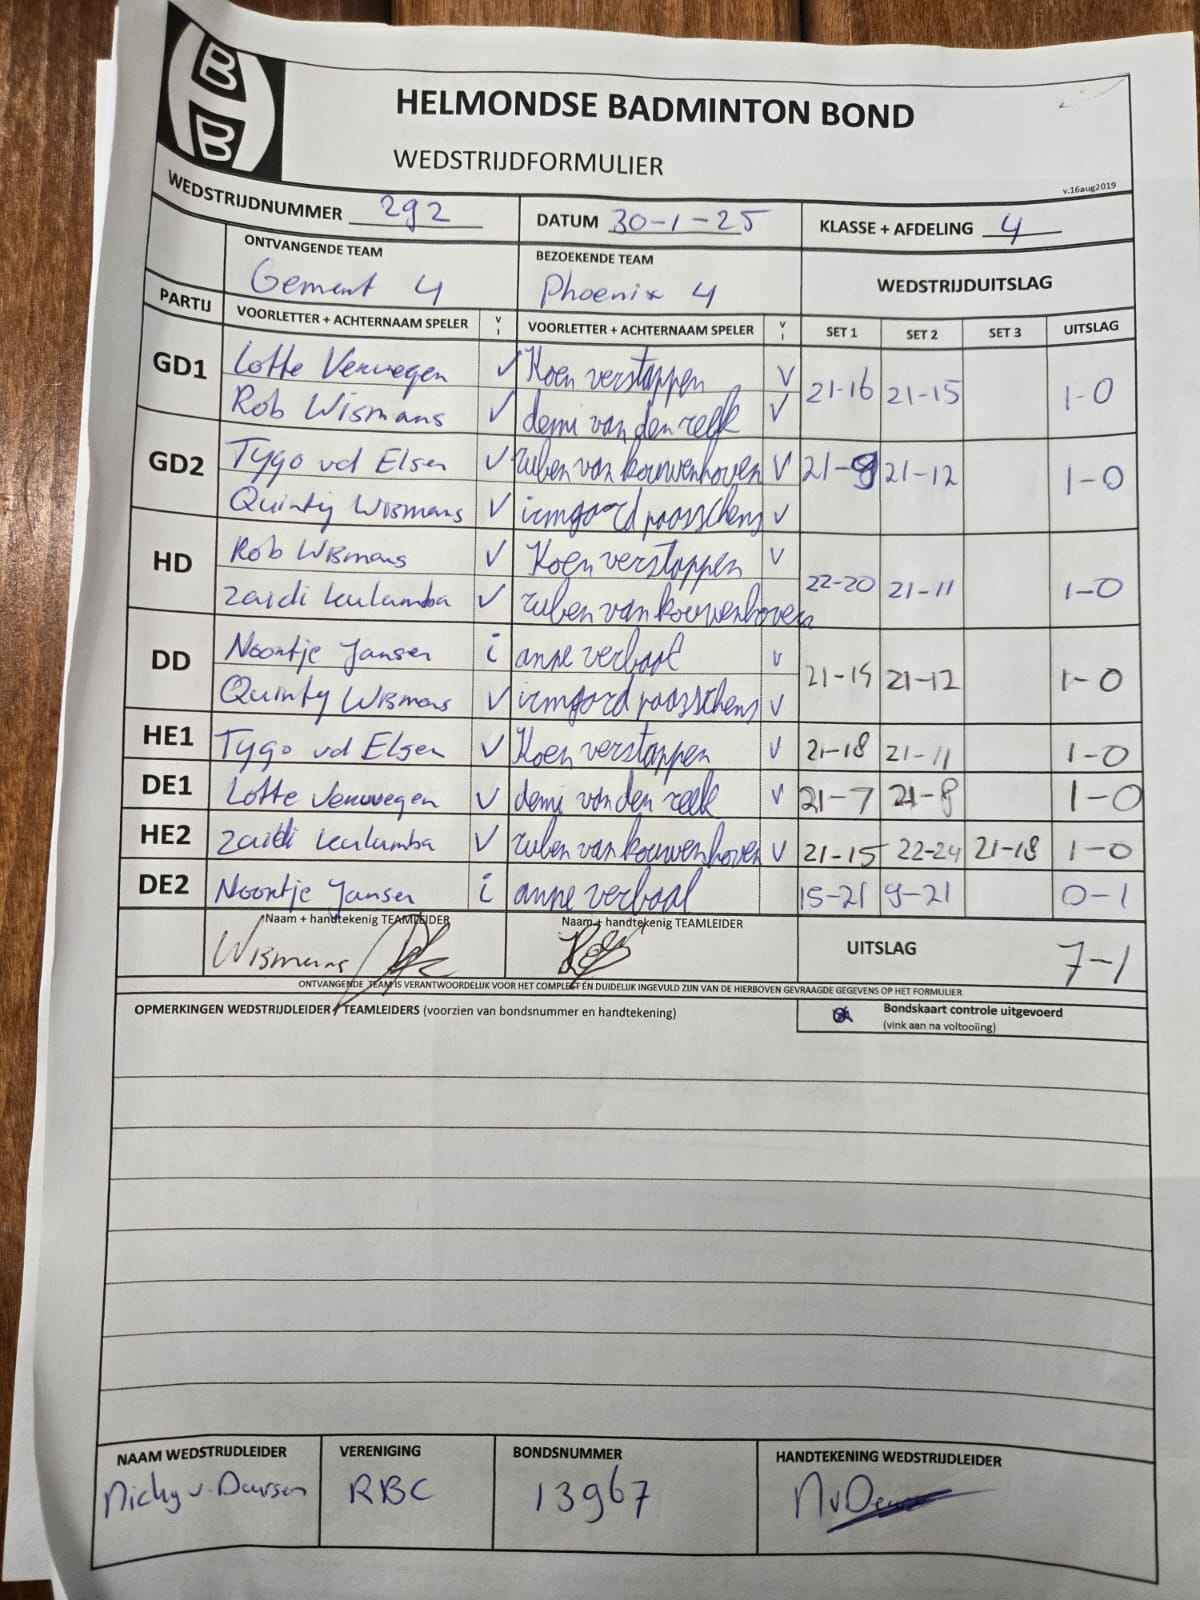 B
B
HELMONDSE BADMINTON BOND
WEDSTRIJDFORMULIER
v.16aug2019
WEDSTRIJDNUMMER 292 DATUM 30-1-25 KLASSE + AFDELING 4
ONTVANGENDE TEAM BEZOEKENDE TEAM WEDSTRIJDUITSLAG
Gement 4 Phoenix 4
PARTIJ VOORLETTER + ACHTERNAAM SPELER V I VOORLETTER + ACHTERNAAM SPELER V I SET 1 SET 2 SET 3 UITSLAG
GD1 Lotte Verwegen V Koen verstappen V 21-16 21-15 1-0
Rob Wismans V demi van den reek V
GD2 Tygo vd Elsen V ruben van kouwenhoven V 21-9 21-12 1-0
Quinty Wismans V irmgard paasschens V
HD Rob Wismans V Koen verstappen V 22-20 21-11 1-0
Zaidi Lulamba V ruben van kouwenhoven
DD Noortje Jansen i anne verbaal v 21-15 21-12 1-0
Quinty Wismans V irmgard paasschens V
HE1 Tygo vd Elsen V Koen verstappen V 21-18 21-11 1-0
DE1 Lotte Verwegen V demi van den reek V 21-7 21-8 1-0
HE2 Zaidi Lulamba V ruben van kouwenhoven V 21-15 22-24 21-18 1-0
DE2 Noortje Jansen i anne verbaal 15-21 9-21 0-1
Naam + handtekenig TEAMLEIDER Naam + handtekenig TEAMLEIDER UITSLAG 7-1
Wismans
ONTVANGENDE TEAM IS VERANTWOORDELIJK VOOR HET COMPLEET EN DUIDELIJK INGEVULD ZIJN VAN DE HIERBOVEN GEVRAAGDE GEGEVENS OP HET FORMULIER
OPMERKINGEN WEDSTRIJDLEIDER / TEAMLEIDERS (voorzien van bondsnummer en handtekening) Bondskaart controle uitgevoerd
(vink aan na voltooiing)
NAAM WEDSTRIJDLEIDER VERENIGING BONDSNUMMER HANDTEKENING WEDSTRIJDLEIDER
Nicky v. Deursen RBC 13967